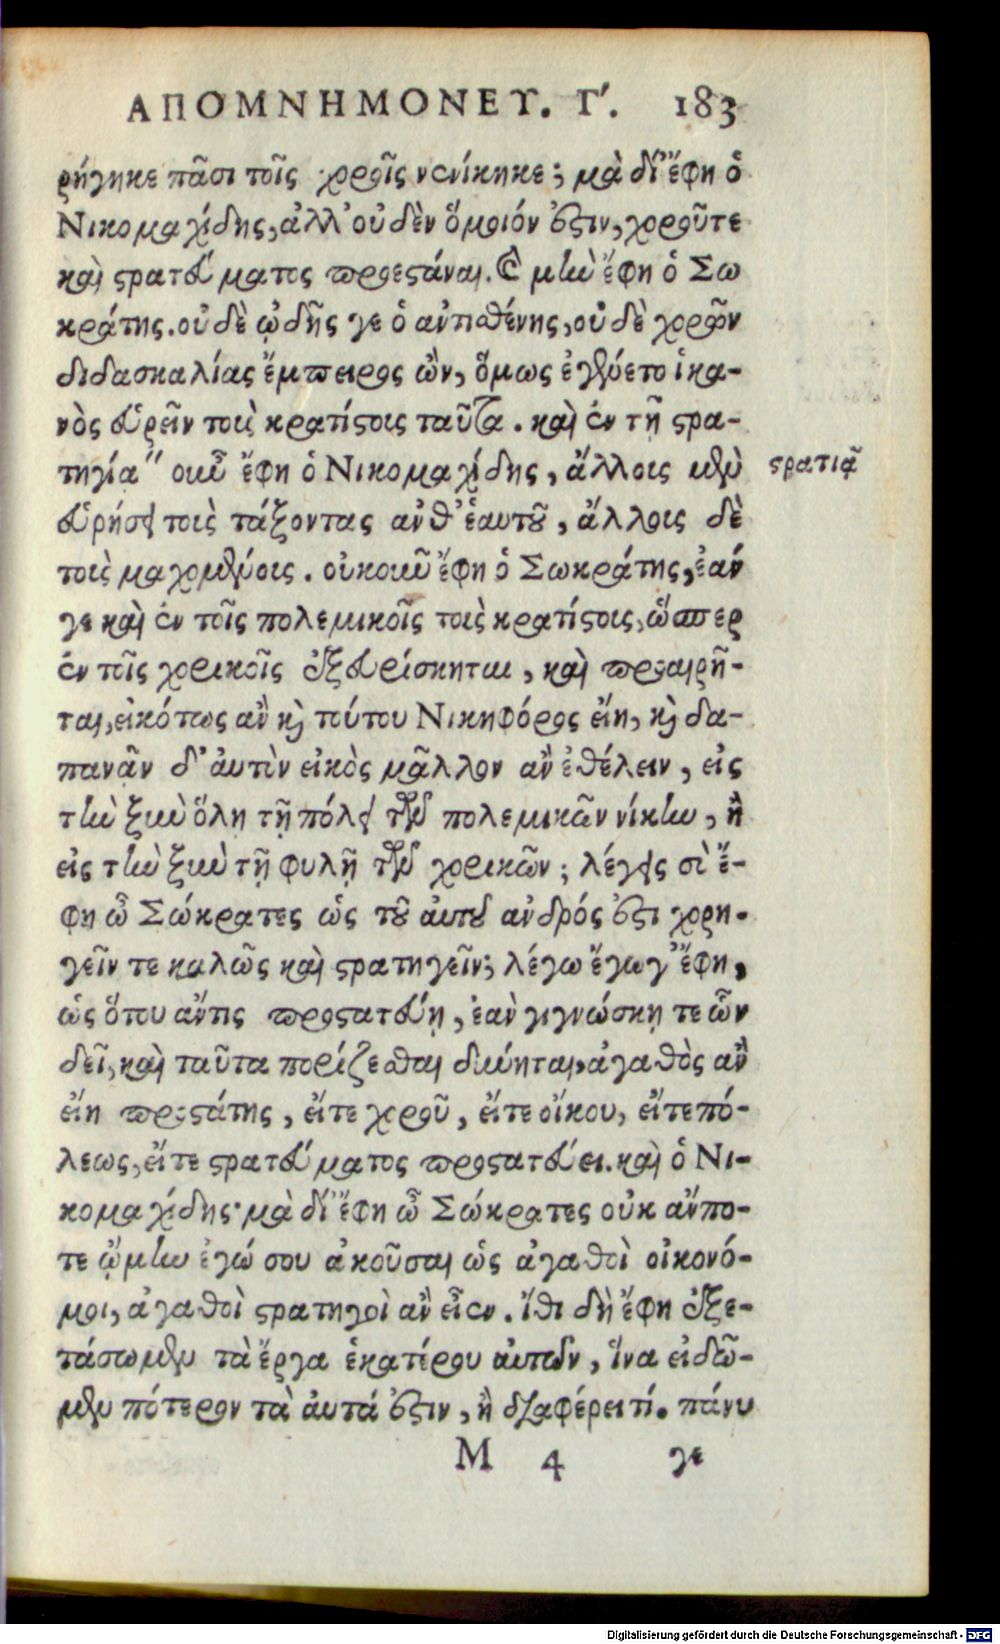 ΑΠΟΜΝΗΜΟΝΕΥ. Γ΄. 183
ρήγηκε πᾶσι τοῖς χοροῖς νενίκηκε; μὰ δί' ἔφη ὁ
Νικομαχίδης, ἀλλ' οὐδὲν ὅμοιόν ἐστιν, χοροῦ τε
καὶ στρατεύματος προεστάναι. Καὶ μὴν ἔφη ὁ Σω
κράτης. οὐδὲ ᾠδῆς γε ὁ ἀντισθένης, οὐδὲ χορῶν
διδασκαλίας ἔμπειρος ὢν, ὅμως ἐγένετο ἱκα-
νὸς εὑρεῖν τοὺς κρατίστους ταῦτα. καὶ ἐν τῇ στρα-
τηγίᾳ" οὖν ἔφη ὁ Νικομαχίδης, ἄλλους μὲν
στρατιᾷ
εὑρήσει τοὺς τάξοντας ἀνθ' ἑαυτοῦ, ἄλλους δὲ
τοὺς μαχομένους. οὐκοῦν ἔφη ὁ Σωκράτης, ἐάν
γε καὶ ἐν τοῖς πολεμικοῖς τοὺς κρατίστους, ὥσπερ
ἐν τοῖς χορικοῖς ἐξευρίσκηται, καὶ προαιρῆ-
ται, εἰκότως ἂν καὶ τούτου Νικηφόρος εἴη, καὶ δα-
πανᾶν δ' αὐτὸν εἰκὸς μᾶλλον ἂν ἐθέλειν, εἰς
τὴν ξὺν ὅλῃ τῇ πόλει τῶν πολεμικῶν νίκην, ἢ
εἰς τὴν ξὺν τῇ φυλῇ τῶν χορικῶν; λέγεις σὺ ἔ-
φη ὦ Σώκρατες ὡς τοῦ αὐτοῦ ἀνδρός ἐστι χορη-
γεῖν τε καλῶς καὶ στρατηγεῖν; λέγω ἔγωγ' ἔφη,
ὡς ὅτου ἄν τις προστατεύῃ, ἐὰν γιγνώσκῃ τε ὧν
δεῖ, καὶ ταῦτα πορίζεσθαι δύνηται, ἀγαθὸς ἂν
εἴη προστάτης, εἴτε χοροῦ, εἴτε οἴκου, εἴτε πό-
λεως, εἴτε στρατεύματος προστατεύει. καὶ ὁ Νι-
κομαχίδης· μὰ δί' ἔφη ὦ Σώκρατες οὐκ ἄν πο-
τε ᾤμην ἐγώ σου ἀκοῦσαι ὡς ἀγαθοὶ οἰκονό-
μοι, ἀγαθοὶ στρατηγοὶ ἂν εἶεν. ἴθι δὴ ἔφη ἐξε-
τάσωμεν τὰ ἔργα ἑκατέρου αὐτῶν, ἵνα εἰδῶ-
μεν πότερον τὰ αὐτά ἐστιν, ἢ διαφέρει τί. πάνυ
M 4 γε
Digitalisierung gefördert durch die Deutsche Forschungsgemeinschaft - DFG